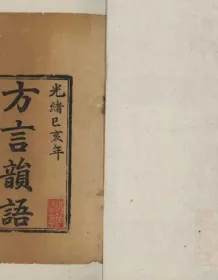 光緒已亥年
方言韻語